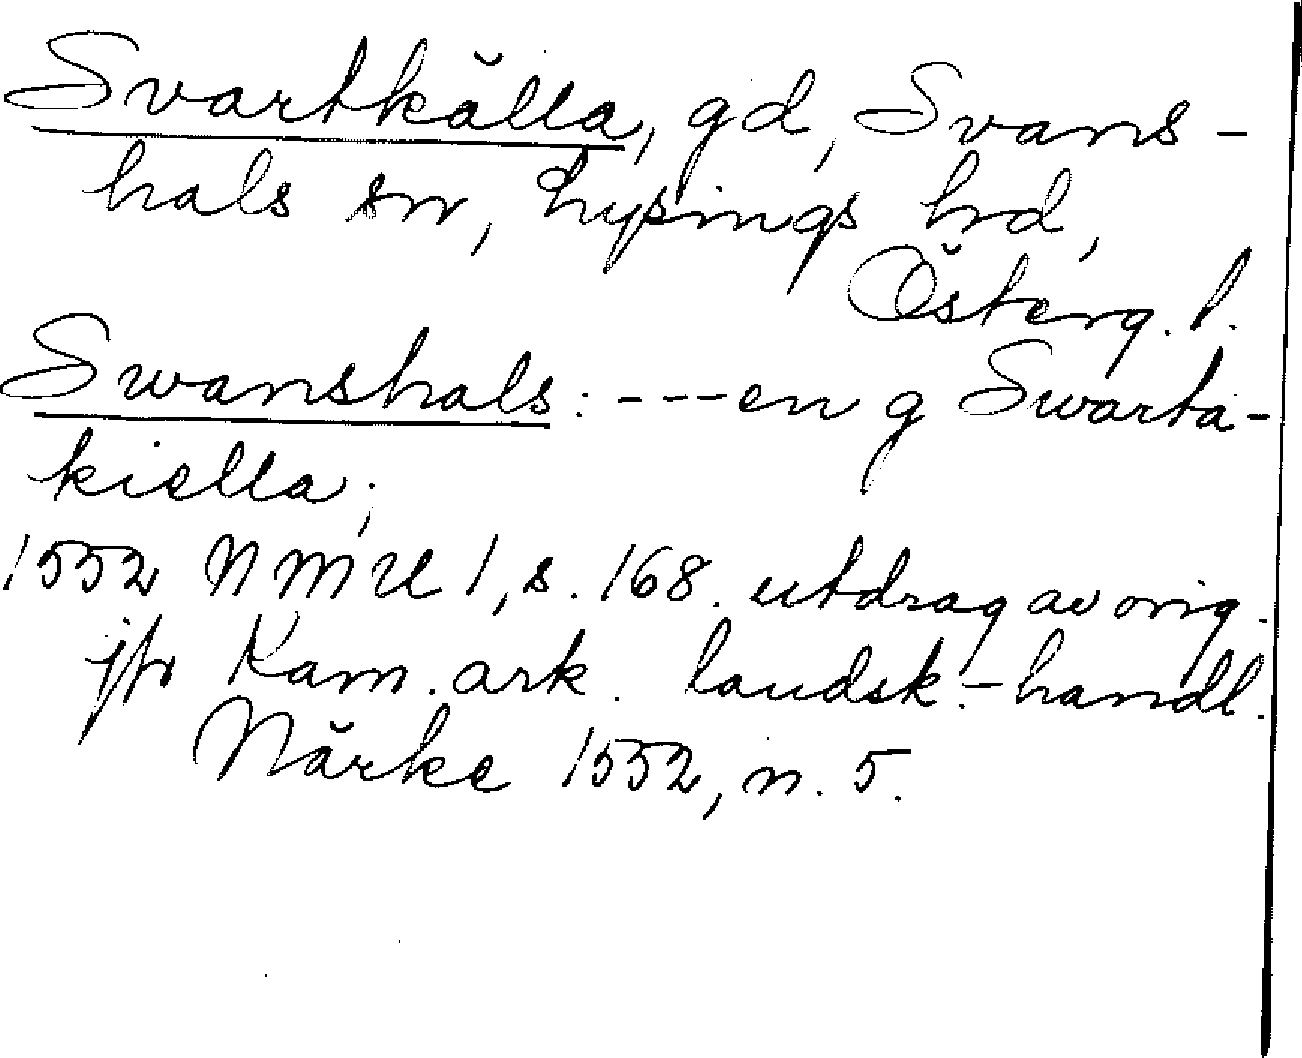 Svartkälla, gd, Svans-
hals sn, Lysings hd,
Österg. l.
Swanshals: ---en g Swarta-
kiella;
1552 NMU 1, s. 168. utdrag av orig.
jfr Kam. ark. landsk.-handl.
Närke 1552, n. 5.